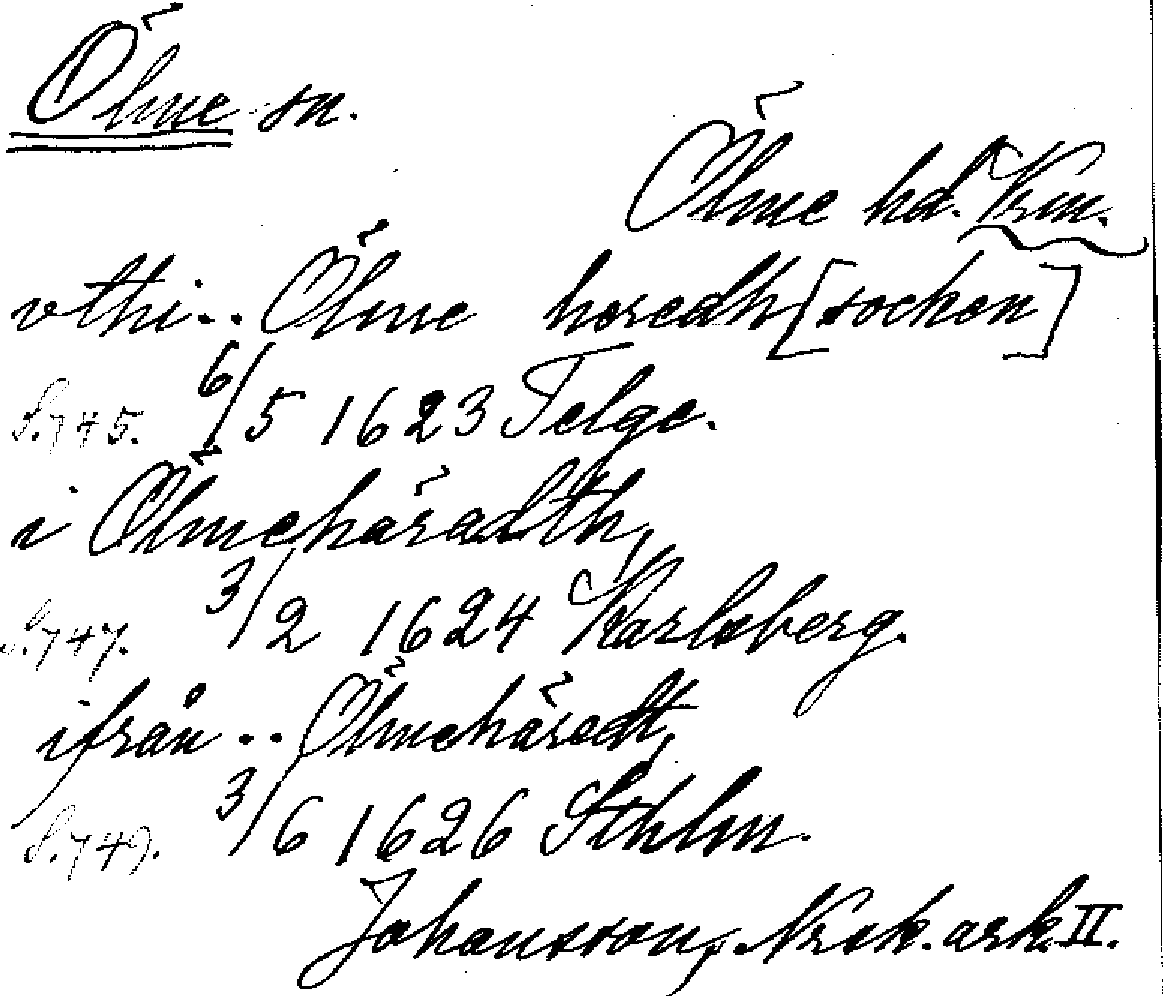 Ölme sn.
Ölme hd. Vrm.
vthi .. Ölme heredh [socken]
S. 745. 6/5 1623 Telge.
i Ölmehäradth,
S. 747. 3/2 1624 Karlsberg.
ifrån .. Ölmehäredt,
S. 749. 3/6 1626 Sthlm.
Johansson, Nrsk. ark. II.